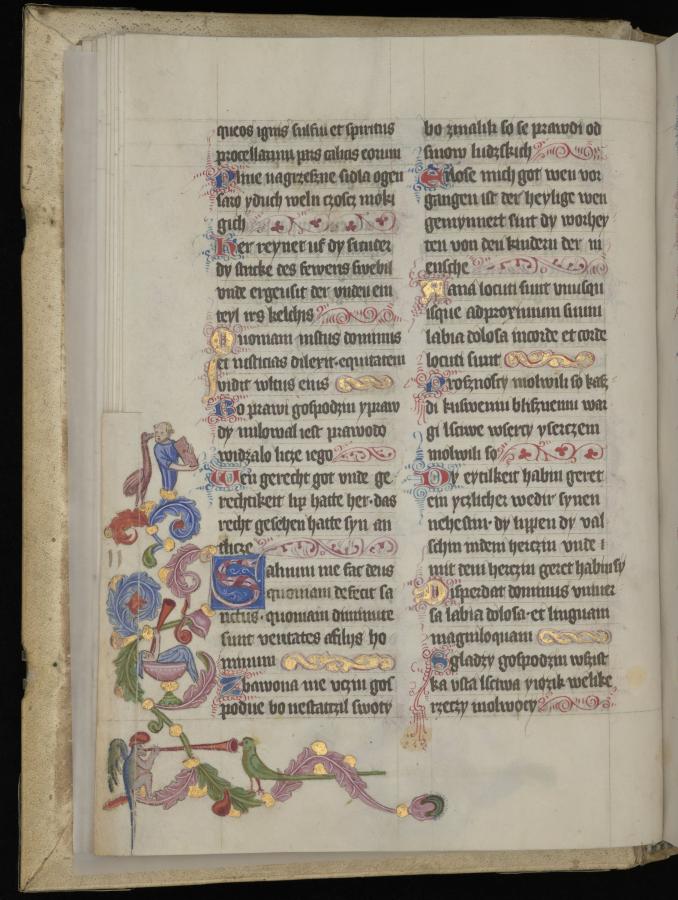 queos ignis sulfur et spiritus
procellarum pars calicis eorum
Plinie na grzeszne sidla ogen
saro y duch weln czoscz mok
gich
Her reynet uf dy sunder
dy stricke des fewers swebil
vnde
teyl irs kelchis
Quoniam iustus dominus
et iusticias dilexit equitatem
vidit wltus eius
Bo prawi gospodzin y praw
dy milowal iest prawoto
widzalo licze iego
Wen gerecht got vnde ge
rechtikeit lip hatte her das
recht gesehen hatte syn an
tlicze
Saluum me fac deus
quoniam defecit sa
nctus quoniam diminute
sunt veritates a filijs ho
minum
Zbawona me vczin gos
podne bo nestatczil swoty
bo zmalili so se prawdi od
sinow ludzskich
Erlose mich got wen vor
gangen ist der heylige wen
gemynnert sint dy worhey
ten von den kindern der m
ensche
Uana locuti sunt vnusqu
isque ad proximum suum
labia dolosa in corde et corde
locuti sunt
Proznosci molwili so kasz
di ku swemu blisznemu war
gi lsciwe w sercy y serczem
molwili so
Dy eytilkeit habin geret
ein yczlicher wedir synen
nehesten dy lippen dy val
schin in dem herczin vnde i
mit dem herczin geret habin sy
Disperdat dominus vniuer
sa labia dolosa et linguam
magniloquam
Sgladzy gospodzin wszist
ka vsta lsciwa y iozik welike
rzeczy molwocy